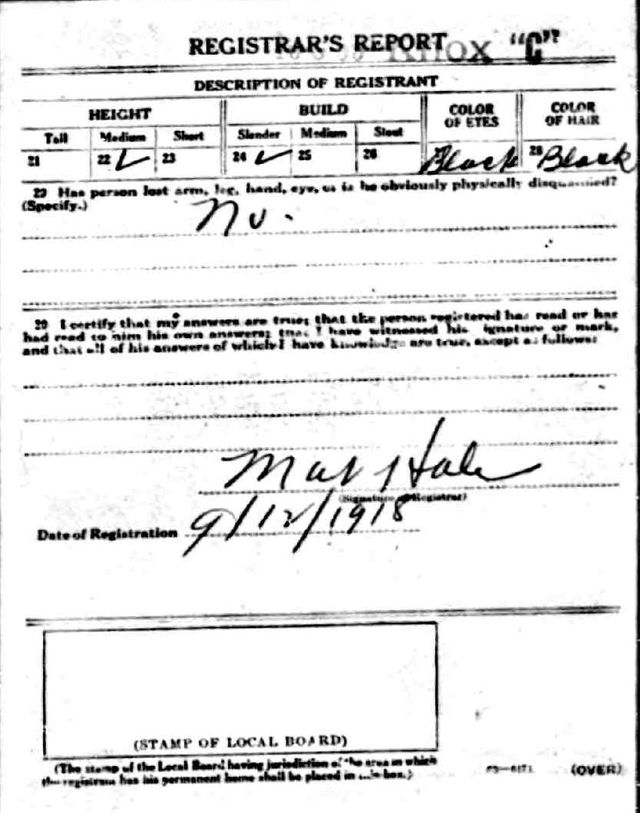 REGISTRAR'S REPORT KNOX "C"
DESCRIPTION OF REGISTRANT
HEIGHT BUILD COLOR OF EYES COLOR OF HAIR
Tall Medium Short Slender Medium Stout
21 22 ✓ 23 24 ✓ 25 26 Black 28 Black
29 Has person lost arm, leg, hand, eye, or is he obviously physically disqualified?
(Specify.) No.
30 I certify that my answers are true; that the person registered has read or has
had read to him his own answers; that I have witnessed his signature or mark,
and that all of his answers of which I have knowledge are true, except as follows:
Hale
(Signature of Registrar)
Date of Registration 9/12/1918
(STAMP OF LOCAL BOARD)
(The stamp of the Local Board having jurisdiction of the area in which
the registrant has his permanent home shall be placed in this box.)
(OVER)